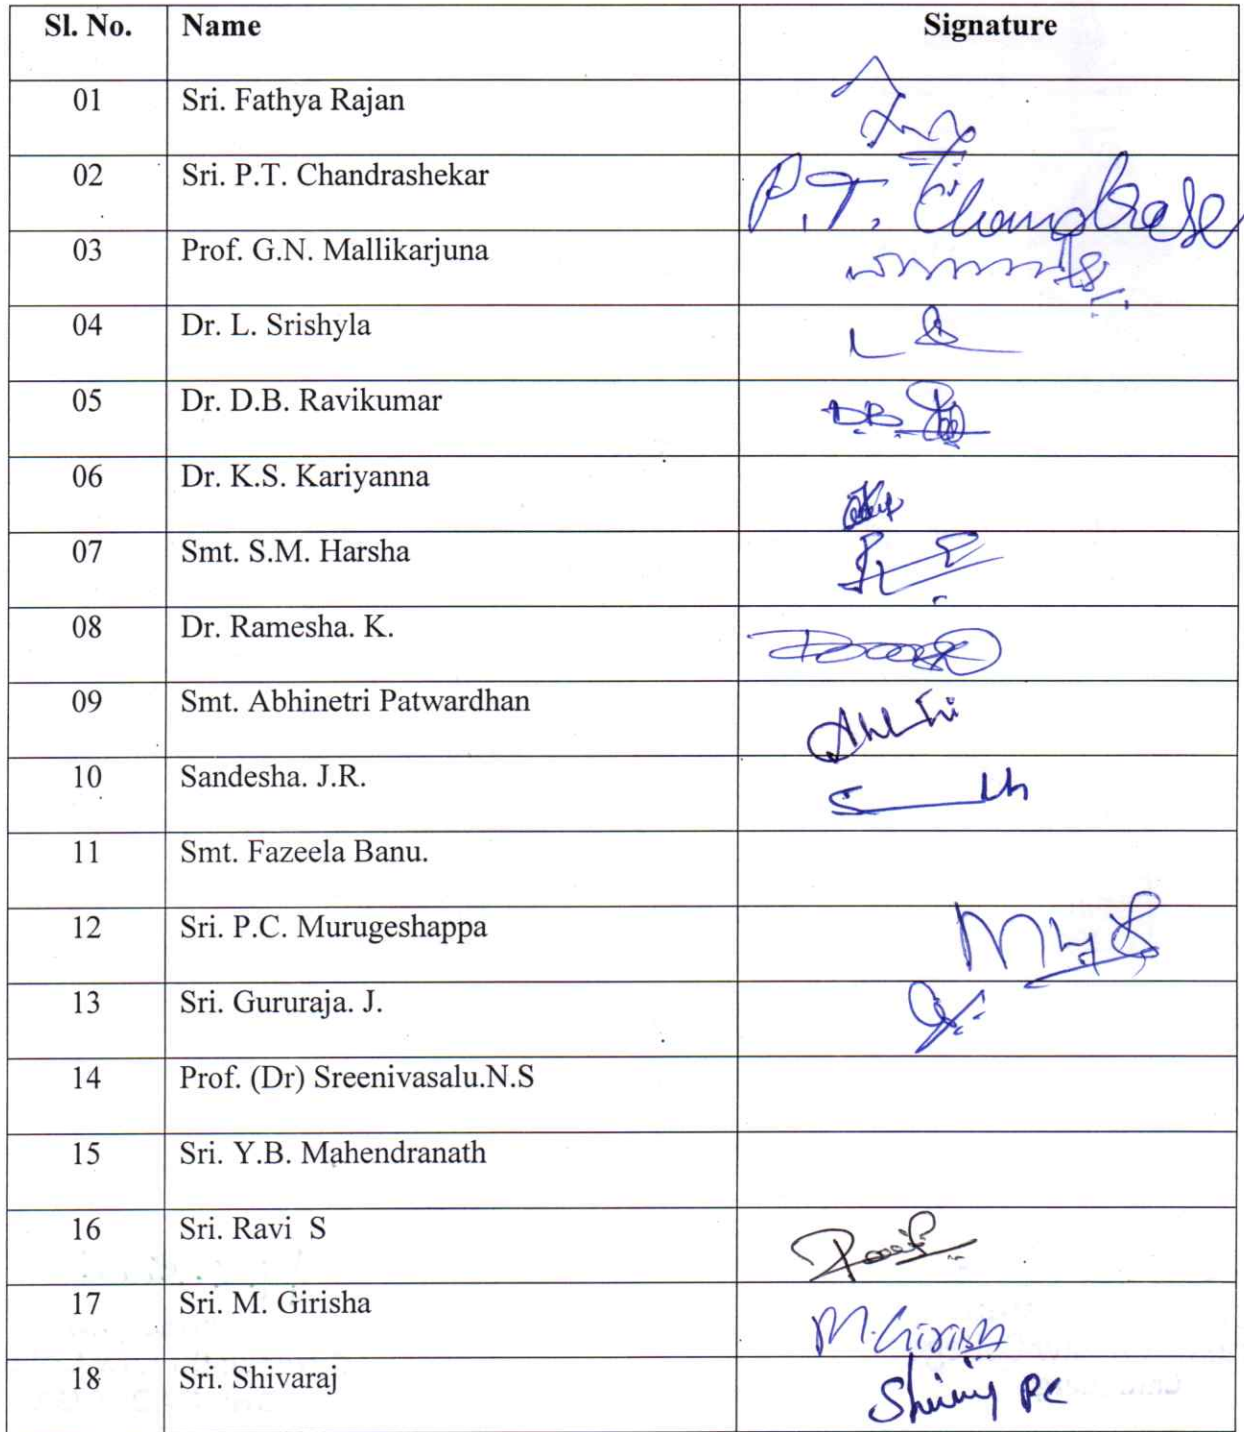 Sl. No. Name Signature
01 Sri. Fathya Rajan
02 Sri. P.T. Chandrashekar P.T. Chandrashe
03 Prof. G.N. Mallikarjuna
04 Dr. L. Srishyla
05 Dr. D.B. Ravikumar D.B.
06 Dr. K.S. Kariyanna
07 Smt. S.M. Harsha
08 Dr. Ramesha. K.
09 Smt. Abhinetri Patwardhan
10 Sandesha. J.R.
11 Smt. Fazeela Banu.
12 Sri. P.C. Murugeshappa
13 Sri. Gururaja. J.
14 Prof. (Dr) Sreenivasalu.N.S
15 Sri. Y.B. Mahendranath
16 Sri. Ravi S
17 Sri. M. Girisha M. Girisha
18 Sri. Shivaraj